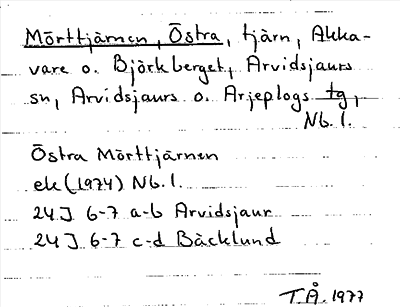 Mörttjärnen, Östra, tjärn, Akka-
vare o. Björkberget, Arvidsjaurs
sn, Arvidsjaurs o. Arjeplogs tg,
Nb. l.
Östra Mörttjärnen
ek (1974) Nb. l.
24J 6-7 a-b Arvidsjaur
24J 6-7 c-d Bäcklund
T.Å. 1977